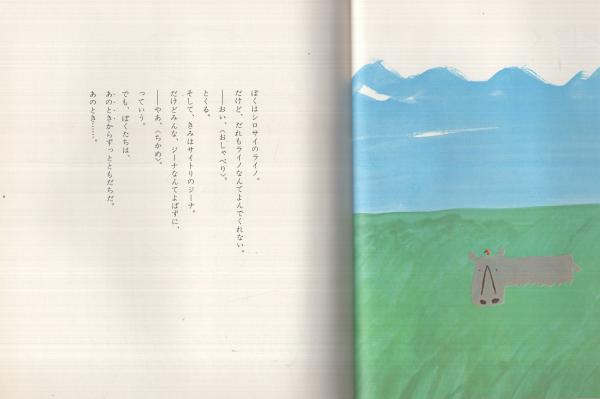 ぼくはシロサイのライノ。
だけど、だれもライノなんてよんでくれない。
――おい、〈おしゃべり〉。
とくる。
そして、きみはサイトリのジーナ。
だけどみんな、ジーナなんてよばずに、
――やあ、〈ちかめ〉。
っていう。
でも、ぼくたちは、
あのときからずっとともだちだ。
あのとき……。